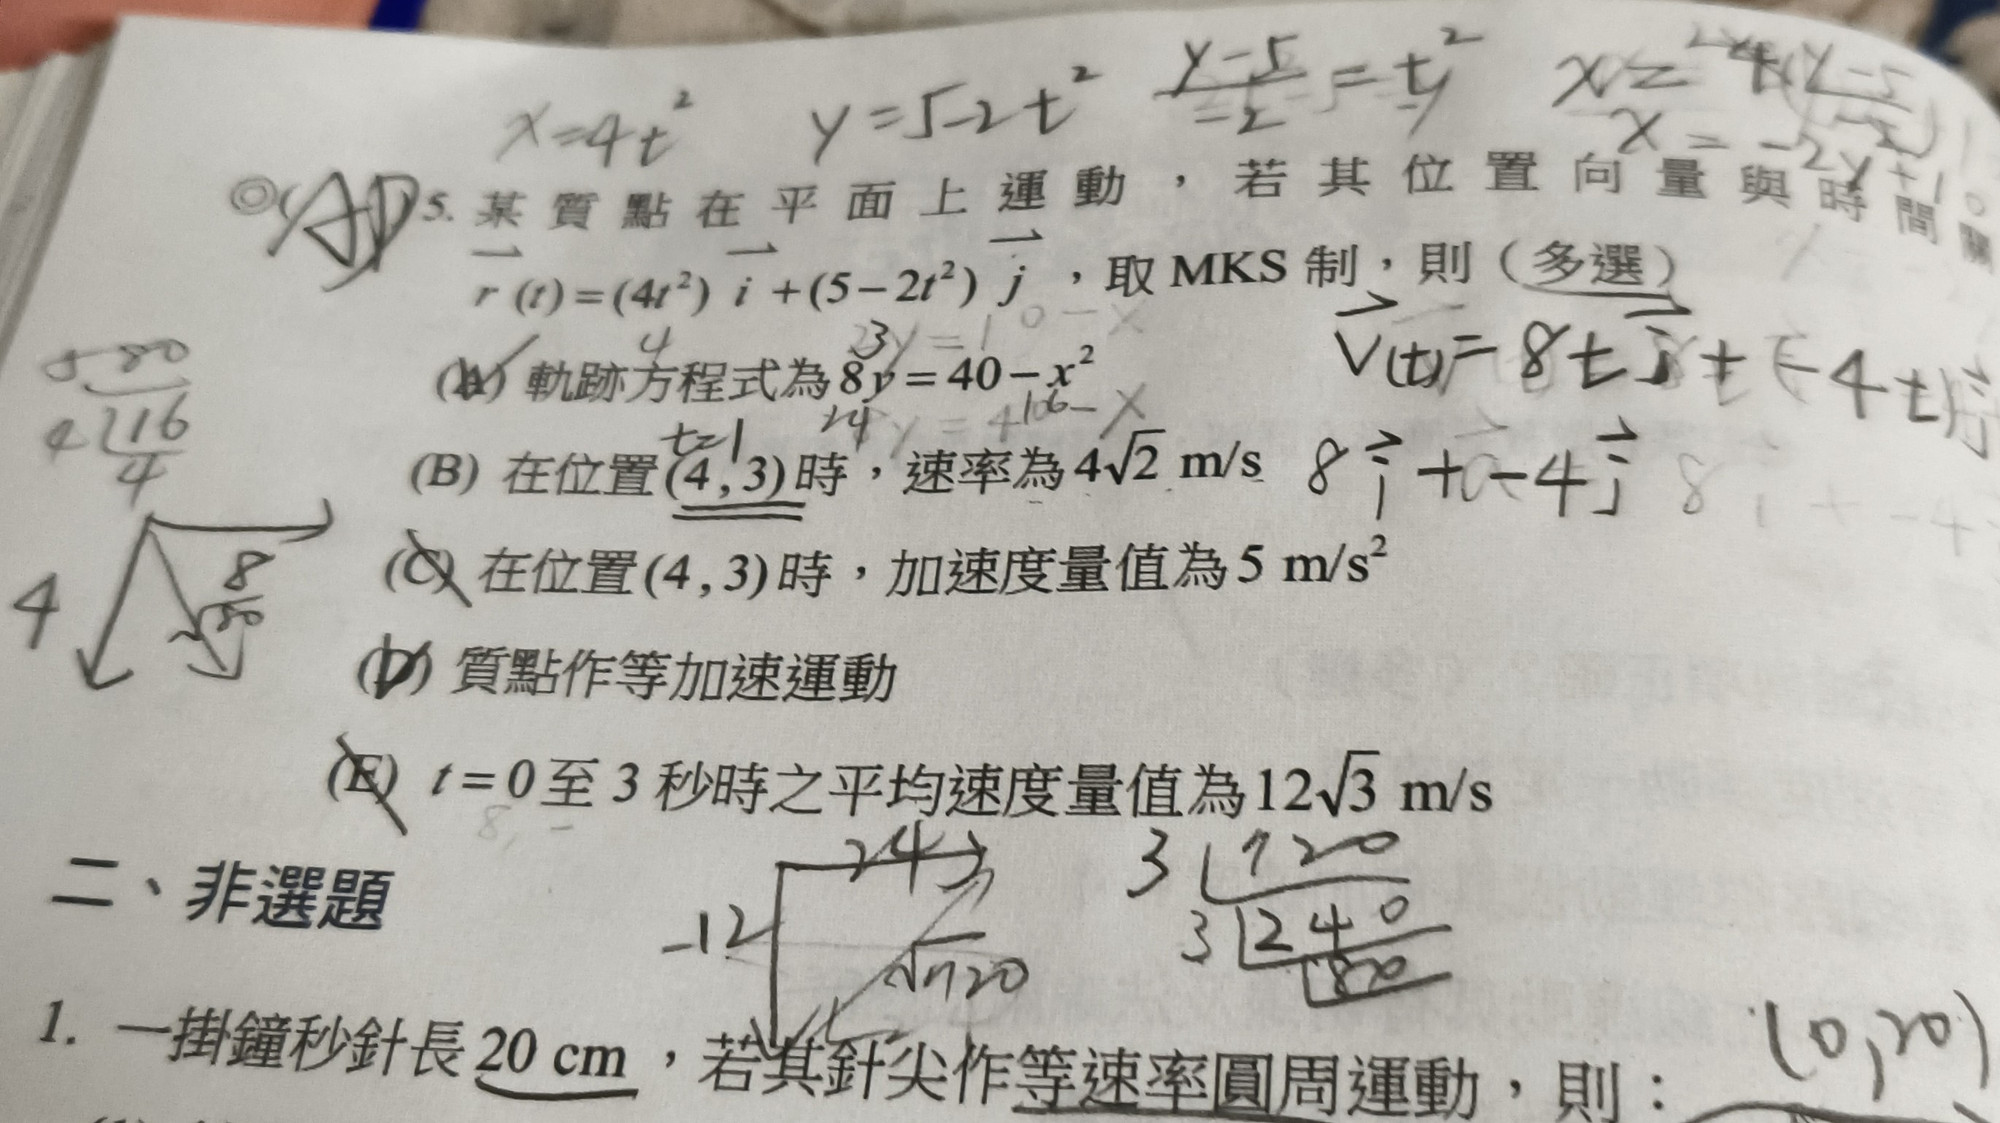 x=4t² y=5-2t² y-5/-2=t²
x=-2y+10
◎(AD) 5. 某質點在平面上運動,若其位置向量與時間關
r(t)=(4t²) i +(5-2t²) j ,取 MKS 制,則(多選)
V(t)=8t i + (-4t) j
(A) 軌跡方程式為 8y=40-x²
t=1
(B) 在位置(4,3)時,速率為 4√2 m/s 8i+-4j
80
4 16
4
(C) 在位置(4,3)時,加速度量值為 5 m/s²
4 8 √80
(D) 質點作等加速運動
(E) t=0至 3 秒時之平均速度量值為 12√3 m/s
24 3 720
-12 √720 3 240
80
二、非選題
1. 一掛鐘秒針長 20 cm ,若其針尖作等速率圓周運動,則:
(0,20)